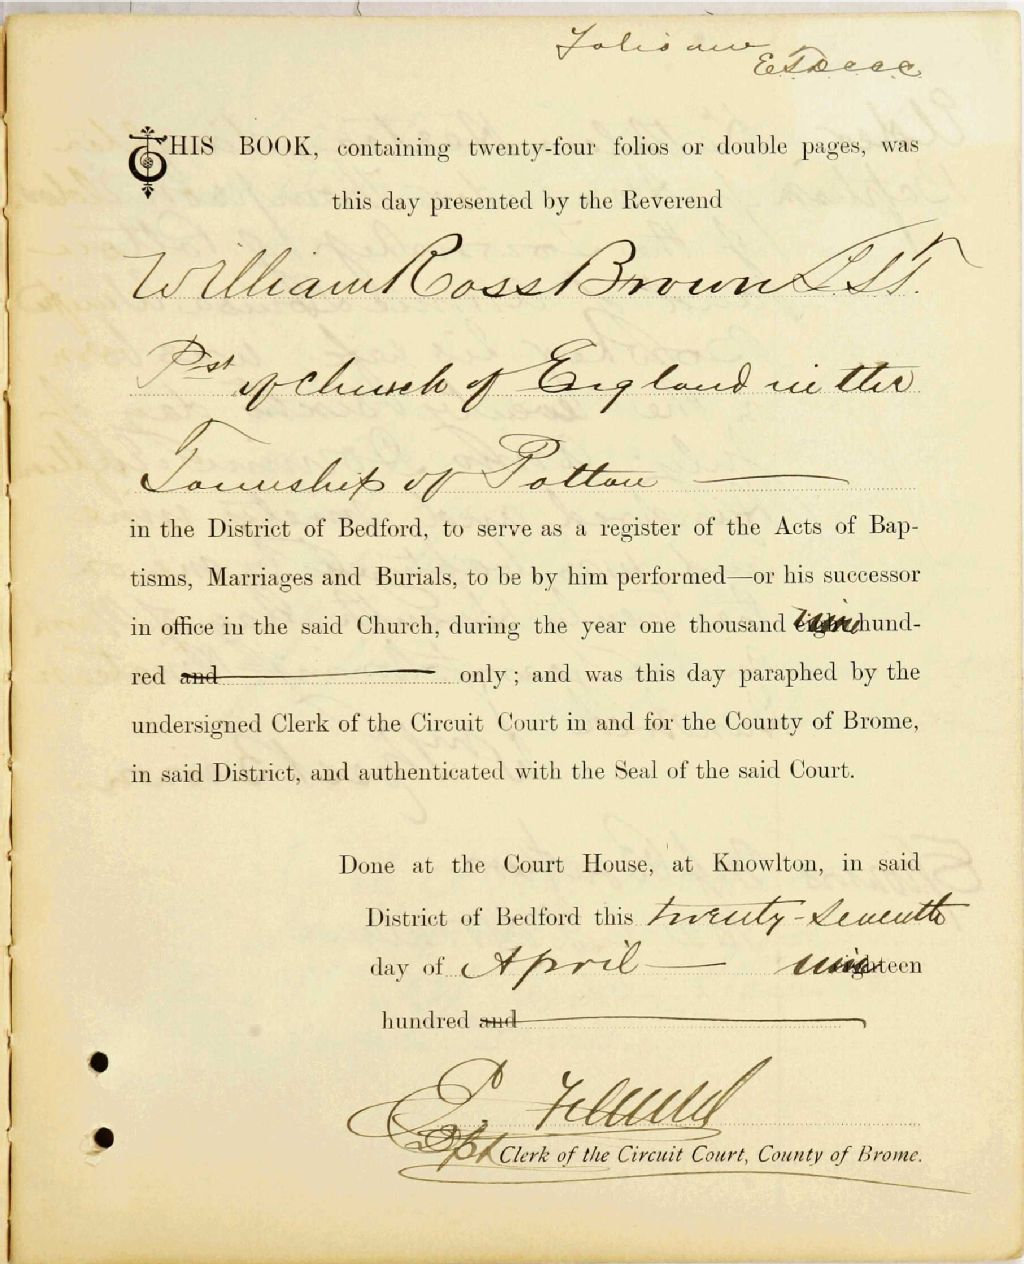 Folio one
THIS BOOK, containing twenty-four folios or double pages, was
this day presented by the Reverend
William Ross Brown
Pst of Church of England in the
Township of Potton
in the District of Bedford, to serve as a register of the Acts of Bap-
tisms, Marriages and Burials, to be by him performed—or his successor
in office in the said Church, during the year one thousand nine hund-
red and only; and was this day paraphed by the
undersigned Clerk of the Circuit Court in and for the County of Brome,
in said District, and authenticated with the Seal of the said Court.
Done at the Court House, at Knowlton, in said
District of Bedford this twenty-seventh
day of April nineteen
hundred and
Dpt Clerk of the Circuit Court, County of Brome.